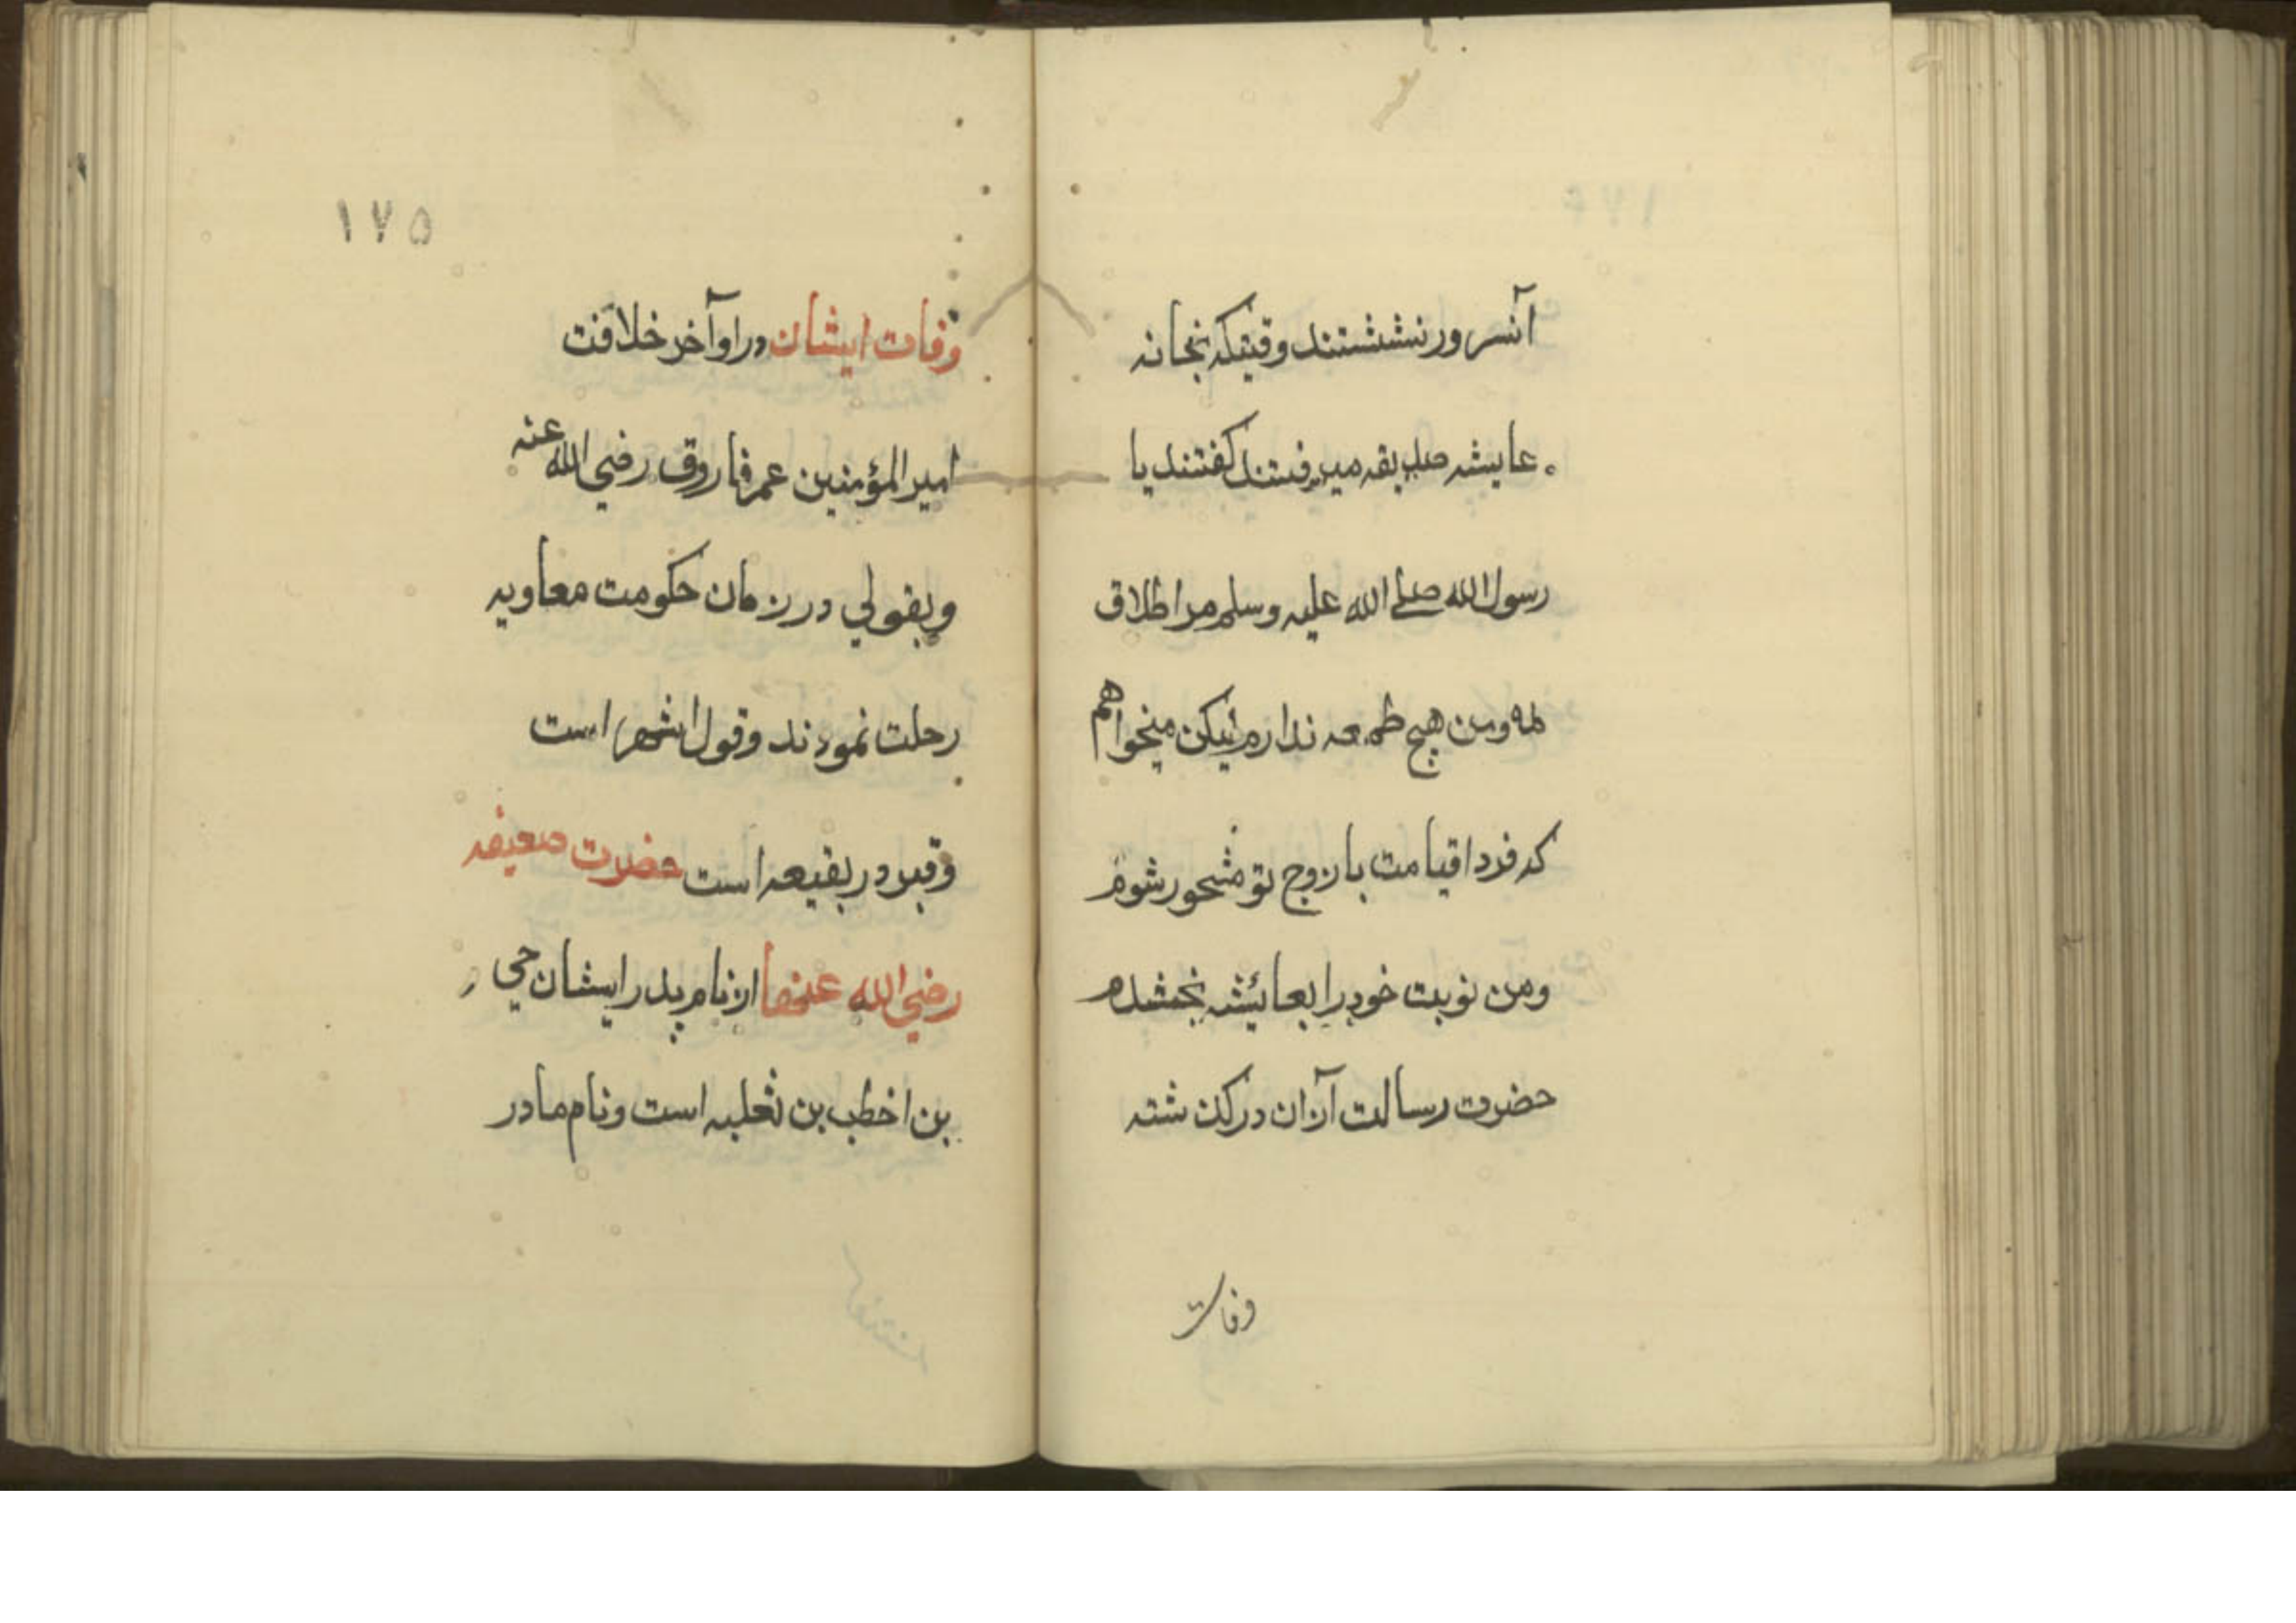 آنسرور نششتند وقتیکه بخانه
عایشه صدیقه میرفتند کفتند یا
رسول الله صلے الله علیه وسلم مرا طلاق
مده ومن هیچ طمعه ندارم لیکن میخواهم
که فردا قیامت با زوج تو مشحور شوم
ومن نوبت خود را بعائشه بخشدم
حضرت رسالت آزان درکذشته
وفات
۱۷۵
وفات ایشان در اوآخر خلافت
امیر المؤمنین عمر فاروق رضی الله عنه
وبقولی در زمان حکومت معاویه
رحلت نمودند وقول اشهر است
وقبر در بقیعه است حضرت صعیفه
رضی الله عنها از نام پدر ایشان حیی
بن اخطب بن ثعلبه است ونام مادر